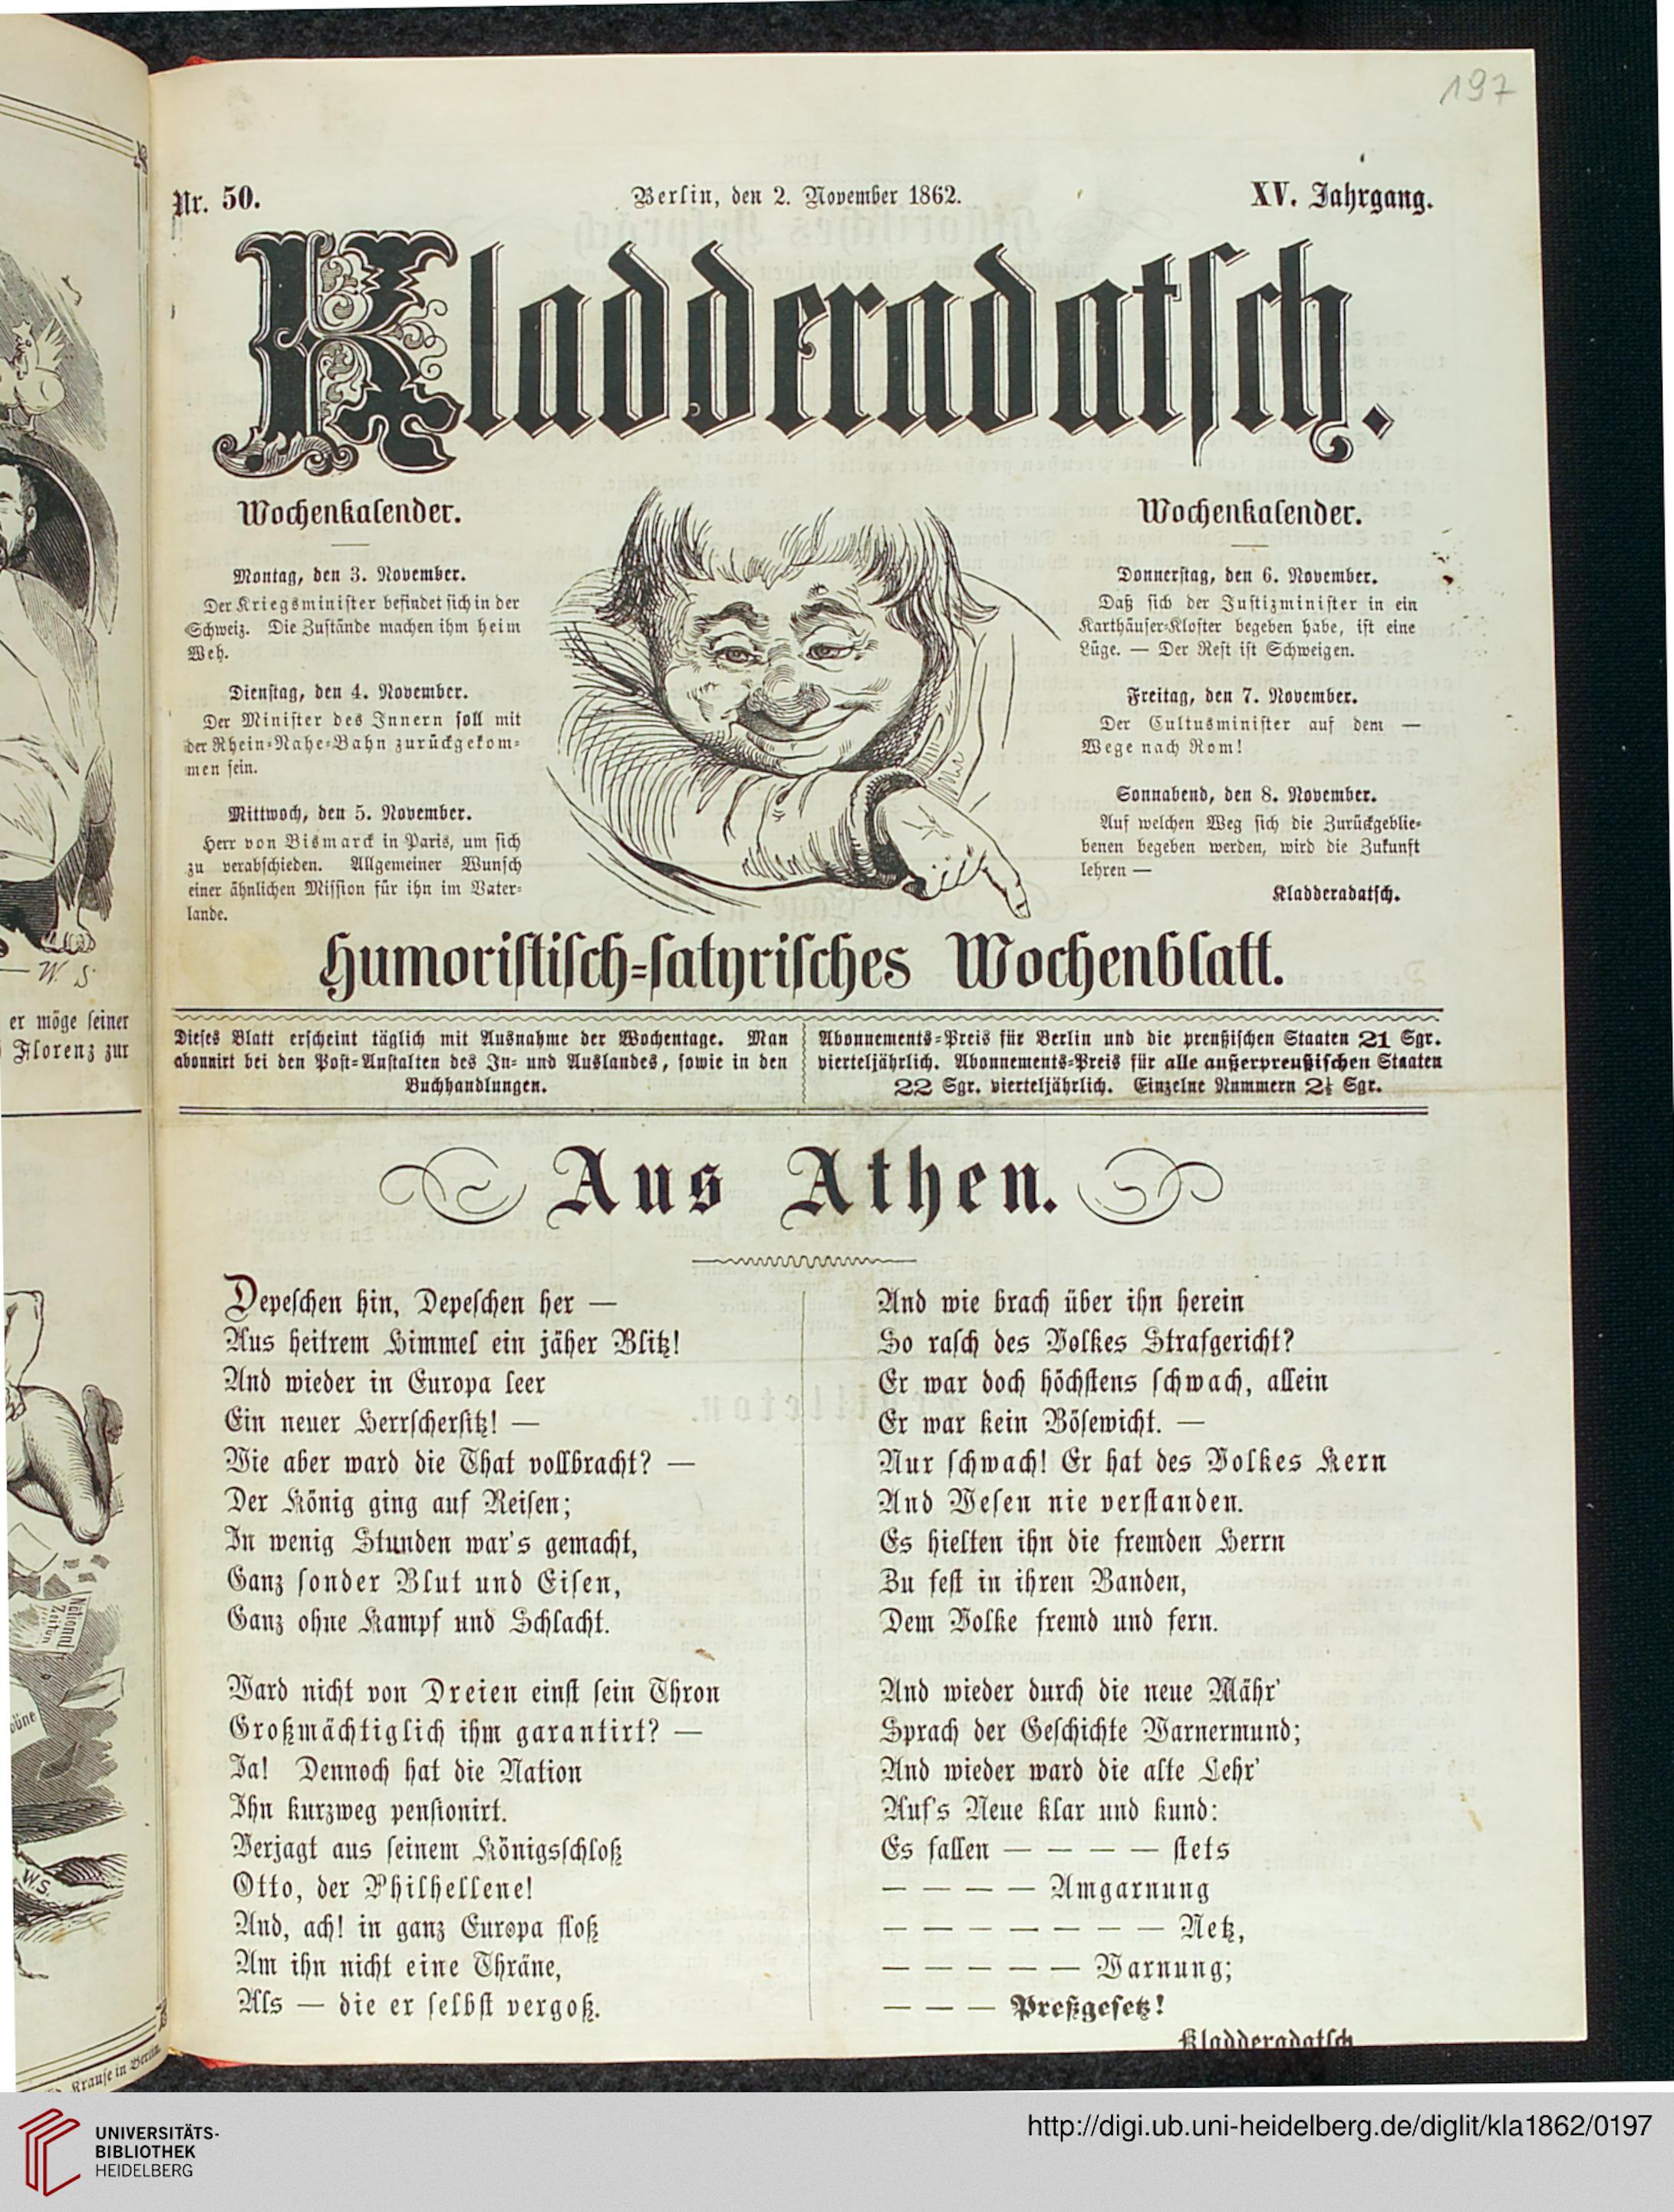 197
Nr. 50.
Berlin, den 2. November 1862.
XV. Jahrgang.
Kladderadatsch.
Wochenkalender.
Montag, den 3. November.
Der Kriegsminister befindet sich in der
Schweiz. Die Zustände machen ihm heim
Weh.
Dienstag, den 4. November.
Der Minister des Innern soll mit
der Rhein-Nahe-Bahn zurückgekom-
men sein.
Mittwoch, den 5. November.
Herr von Bismarck in Paris, um sich
zu verabschieden. Allgemeiner Wunsch
einer ähnlichen Mission für ihn im Vater-
lande.
Wochenkalender.
Donnerstag, den 6. November.
Daß sich der Justizminister in ein
Karthäuser-Kloster begeben habe, ist eine
Lüge. — Der Rest ist Schweigen.
Freitag, den 7. November.
Der Cultusminister auf dem —
Wege nach Rom!
Sonnabend, den 8. November.
Auf welchen Weg sich die Zurückgeblie-
benen begeben werden, wird die Zukunft
lehren —
Kladderadatsch.
Humoristisch-satyrisches Wochenblatt.
Dieses Blatt erscheint täglich mit Ausnahme der Wochentage. Man
abonnirt bei den Post-Anstalten des In- und Auslandes, sowie in den
Buchhandlungen.
Abonnements-Preis für Berlin und die preußischen Staaten 21 Sgr.
vierteljährlich. Abonnements-Preis für alle außerpreußischen Staaten
22 Sgr. vierteljährlich. Einzelne Nummern 2½ Sgr.
Aus Athen.
Depeschen hin, Depeschen her —
Aus heitrem Himmel ein jäher Blitz!
Und wieder in Europa leer
Ein neuer Herrschersitz! —
Wie aber ward die That vollbracht? —
Der König ging auf Reisen;
In wenig Stunden war's gemacht,
Ganz sonder Blut und Eisen,
Ganz ohne Kampf und Schlacht.
Ward nicht von Dreien einst sein Thron
Großmächtiglich ihm garantirt? —
Ja! Dennoch hat die Nation
Ihn kurzweg pensionirt.
Verjagt aus seinem Königsschloß
Otto, der Philhellene!
Und, ach! in ganz Europa floß
Um ihn nicht eine Thräne,
Als — die er selbst vergoß.
Und wie brach über ihn herein
So rasch des Volkes Strafgericht?
Er war doch höchstens schwach, allein
Er war kein Bösewicht. —
Nur schwach! Er hat des Volkes Kern
Und Wesen nie verstanden.
Es hielten ihn die fremden Herrn
Zu fest in ihren Banden,
Dem Volke fremd und fern.
Und wieder durch die neue Mähr'
Sprach der Geschichte Warnermund;
Und wieder ward die alte Lehr'
Auf's Neue klar und kund:
Es fallen — — — — stets
— — — — Umgarnung
— — — — — — — Netz,
— — — — — Warnung;
— — — Preßgesetz!
Kladderadatsch
W. S.
er möge seiner
Florenz zur
National
Zeitun
W.S.
Krause in Berlin.
UNIVERSITÄTS-
BIBLIOTHEK
HEIDELBERG
http://digi.ub.uni-heidelberg.de/diglit/kla1862/0197